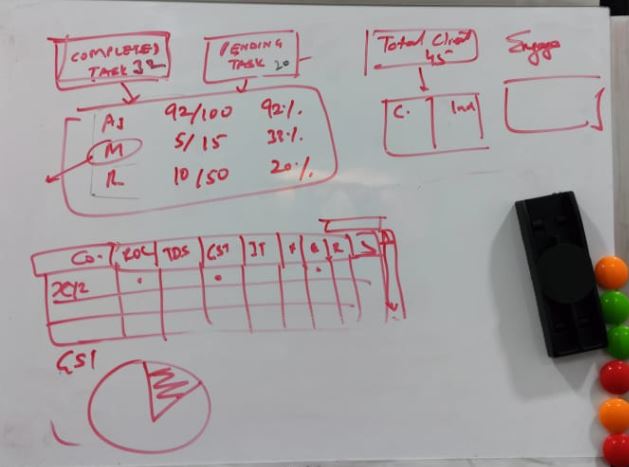 COMPLETED TASK 32
PENDING TASK 20
Total Client 45
Engage
AJ 92/100 92%
M 5/15 33%
R 10/50 20%
C. Ind
Co. ROC TDS GST IT
XYZ
GST